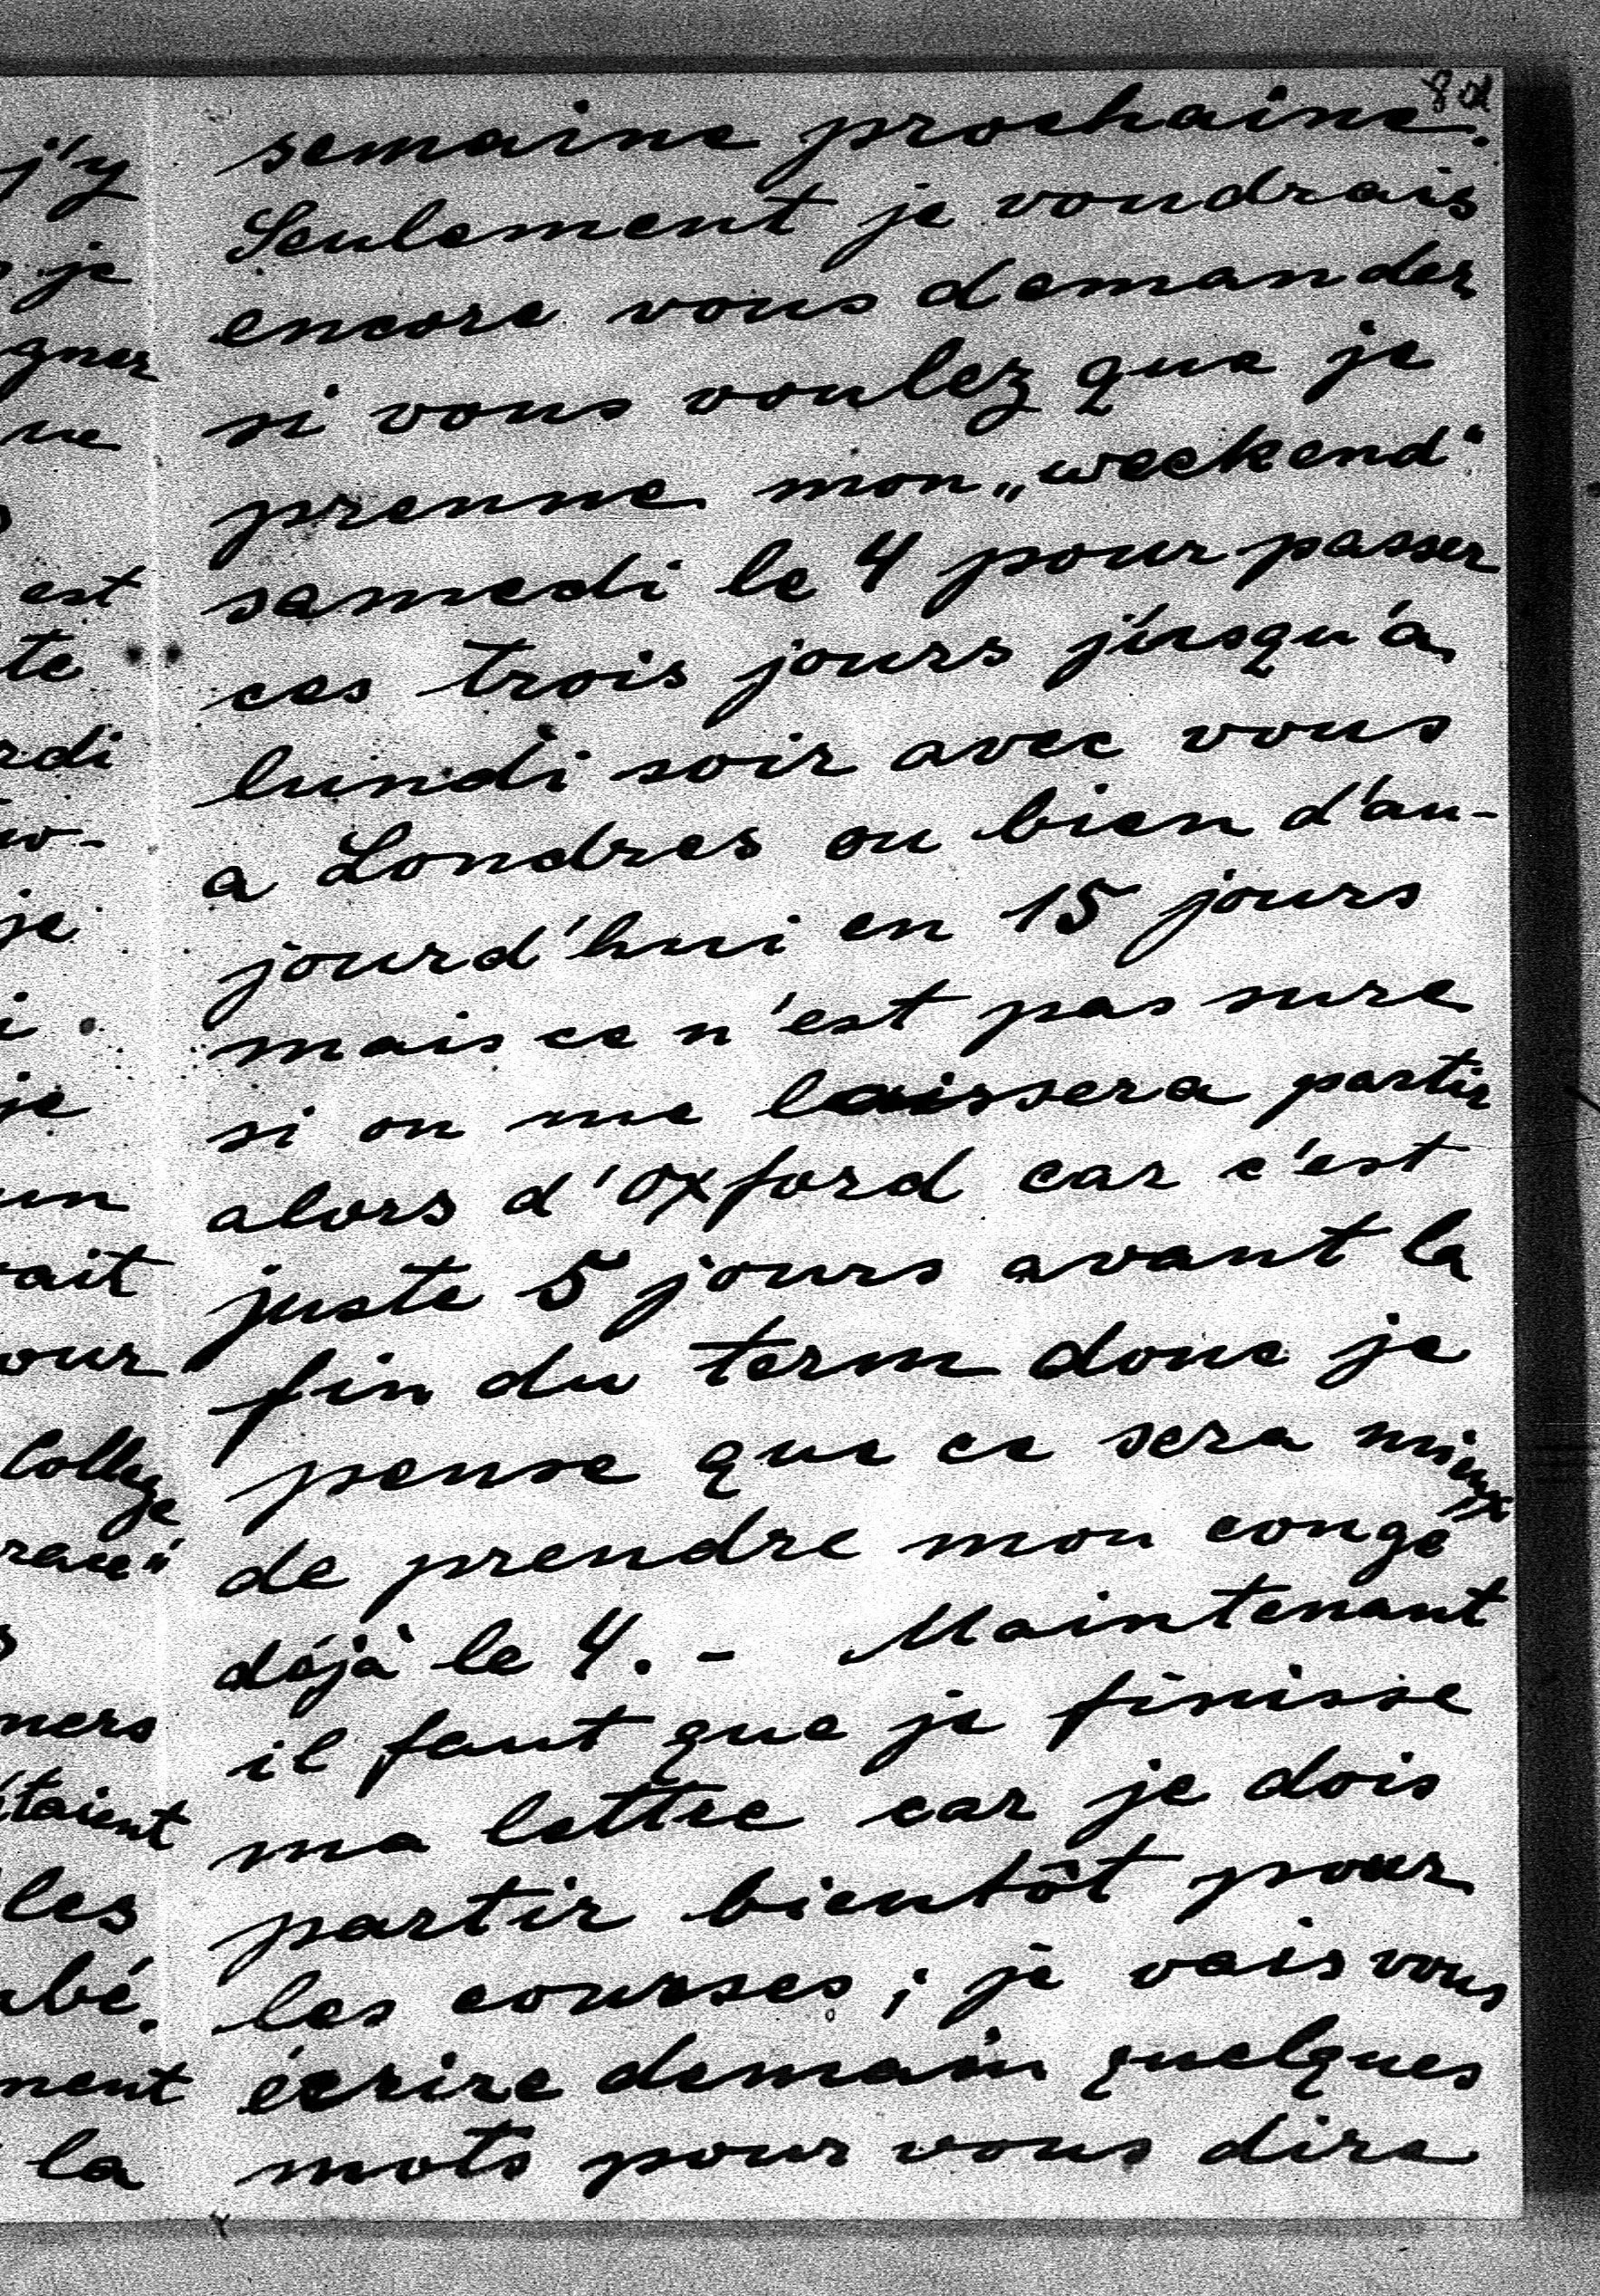 8d
semaine prochaine.
Seulement je voudrais
encore vous demander
si vous voulez que je
prenne mon „weekend"
samedi le 4 pour passer
ces trois jours jusqu'à
lundi soir avec vous
a Londres ou bien d'au-
jourd'hui en 15 jours
mais ce n'est pas sure
si on me laissera partir
alors d'Oxford car c'est
juste 5 jours avant la
fin du term donc je
pense que ce sera mieux
de prendre mon congé
déjà le 4. - Maintenant
il faut que je finisse
ma lettre car je dois
partir bientôt pour
les courses; je vais vous
écrire demain quelques
mots pour vous dire
j'y
je
gner
ne
est
te
rdi
je
i
je
un
ait
our
College
race"
s
ners
étaient
les
bé.
ment
la